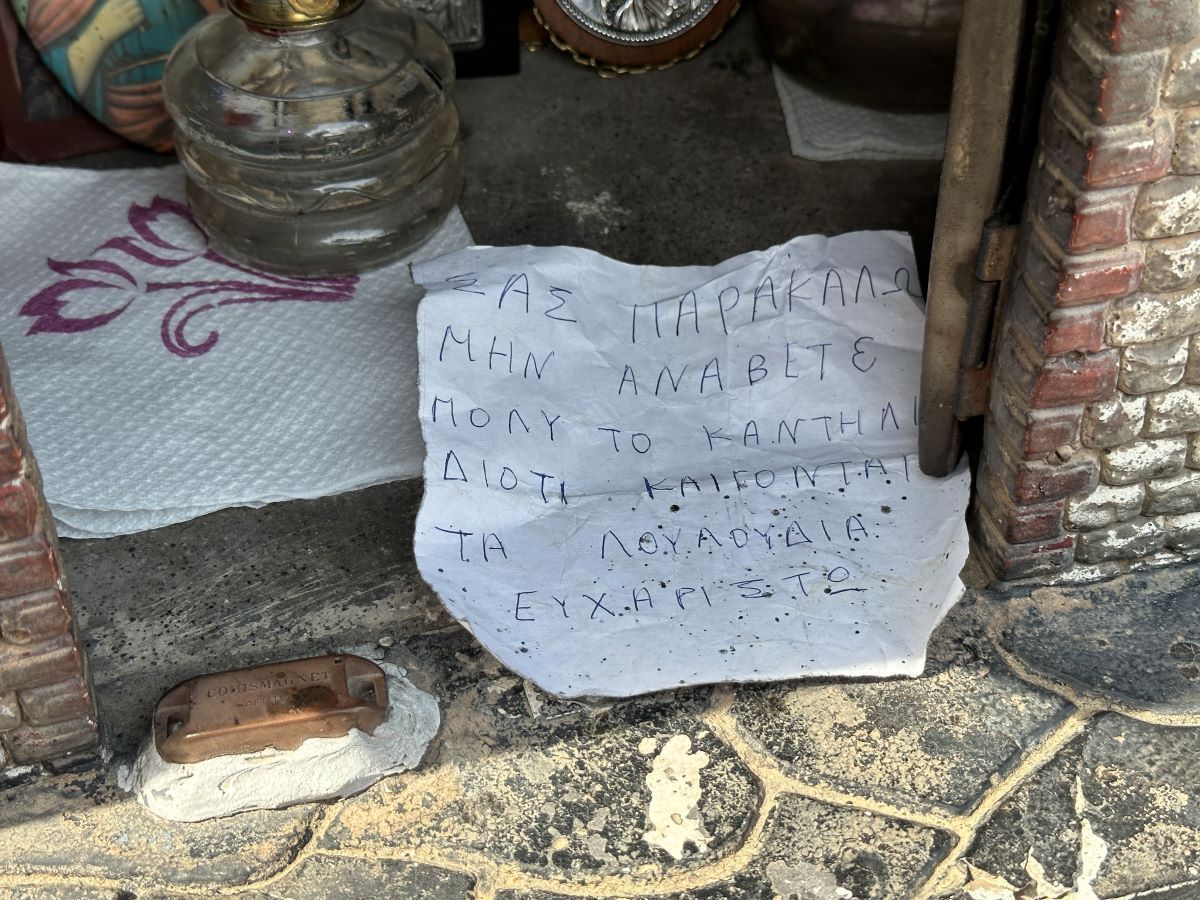 ΣΑΣ ΠΑΡΑΚΑΛΩ
ΜΗΝ ΑΝΑΒΕΤΕ
ΠΟΛΥ ΤΟ ΚΑΝΤΗΛΙ
ΔΙΟΤΙ ΚΑΙΓΟΝΤΑΙ
ΤΑ ΛΟΥΛΟΥΔΙΑ
ΕΥΧΑΡΙΣΤΩ